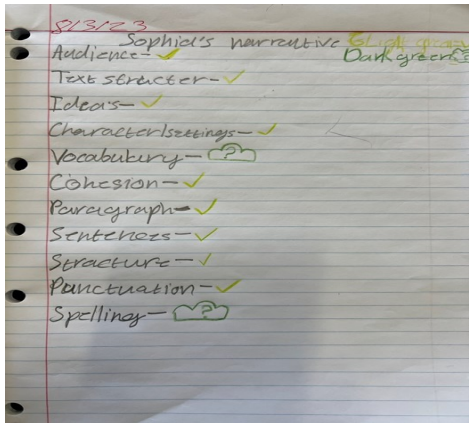 8/3/23
Sophia's narrative
Audience- ✓ Dark green
Text structer- ✓
Idea's- ✓
Character/settings- ✓
Vocabulary- ?
Cohesion- ✓
Paragraph- ✓
Senteness- ✓
Structure- ✓
Punctuation- ✓
Spelling- ?